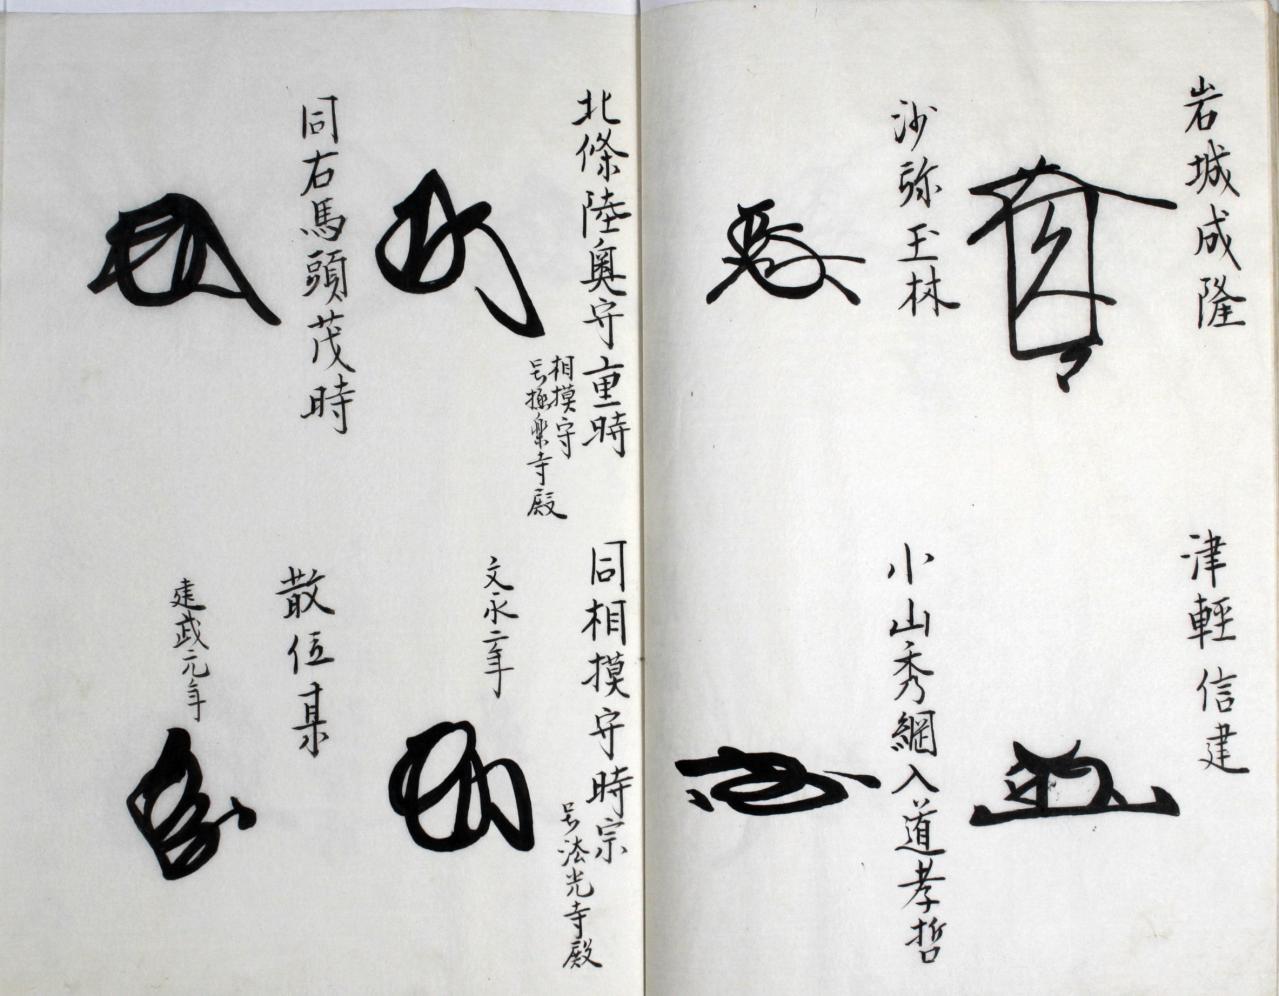 岩城成隆
津輕信建
沙弥玉林
小山秀綱入道孝哲
北條陸奥守重時
相摸守
号極楽寺殿
同相摸守時宗
号法光寺殿
文永二年
同右馬頭茂時
散位某
建武元年